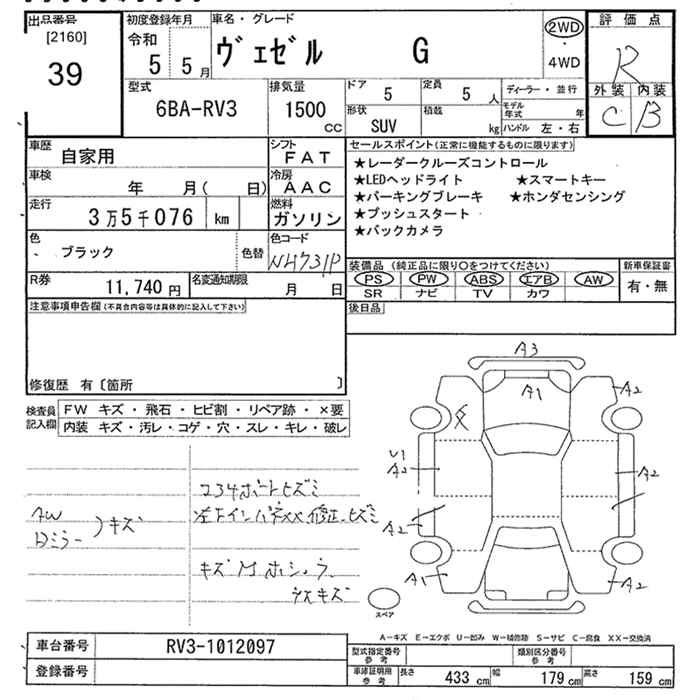 出品番号
[2160]
39
初度登録年月
令和
5 5月
車名・グレード
ヴェゼル G
2WD
4WD
評価点
R
外装 内装
C B
型式
6BA-RV3
排気量
1500
CC
ドア
5
定員
5 人
形状
SUV
積載
kg
ディーラー・並行
モデル年式 年
ハンドル 左・右
車歴
自家用
シフト
FAT
車検
年 月( 日)
冷房
AAC
走行
3万5千076 km
燃料
ガソリン
色
ブラック
色替
色コード
NH731P
R券
11,740 円
名変通知期限
月 日
セールスポイント(正常に機能するものに限ります)
★レーダークルーズコントロール
★LEDヘッドライト ★スマートキー
★パーキングブレーキ ★ホンダセンシング
★プッシュスタート
★バックカメラ
装備品 (純正品に限り○をつけてください)
PS PW ABS エアB AW
SR ナビ TV カワ
新車保証書
有・無
後日品
注意事項申告欄(不具合内容等は具体的に記入して下さい)
修復歴 有〔箇所 〕
検査員記入欄
FW キズ・飛石・ヒビ割・リペア跡・×要
内装 キズ・汚レ・コゲ・穴・スレ・キレ・破レ
AW
Dミラー
)キズ
左下インパネXX修正、ヒズミ
A3
A1
A2
U1
A2
A2
A2
A1
A2
スペア
A-キズ E-エクボ U-凹み W-補修跡 S-サビ C-腐食 XX-交換済
車台番号
RV3-1012097
登録番号
型式指定番号
参考
類別区分番号
参考
車庫証明用
参考
長さ 433 cm
幅 179 cm
高さ 159 cm